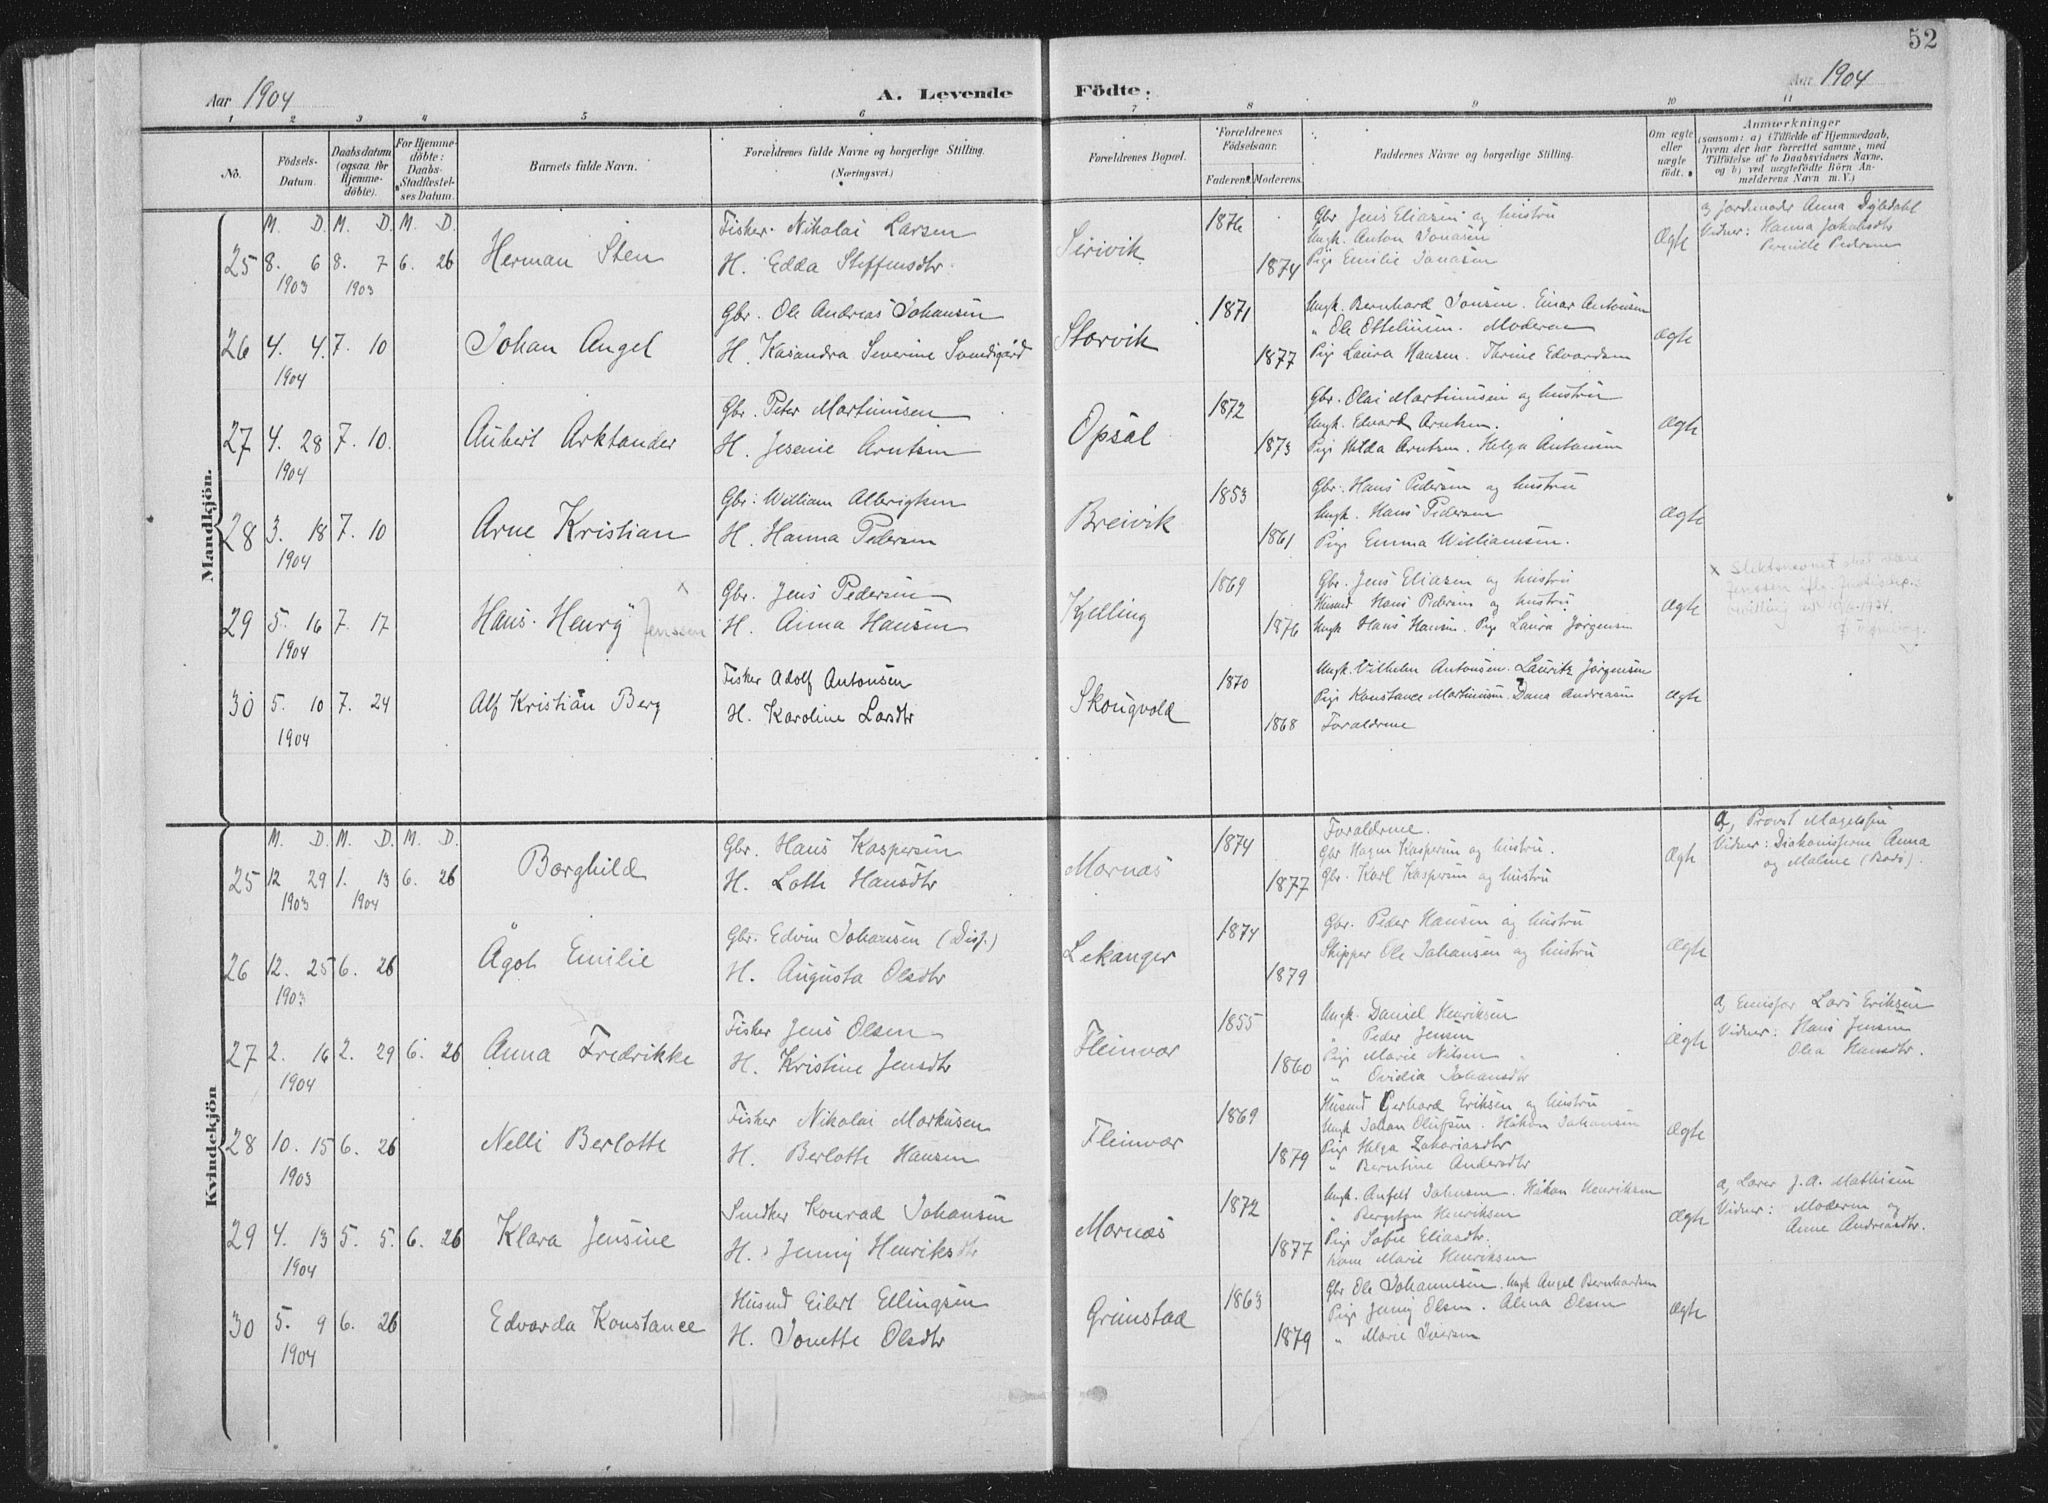 52
Aar 1904
A. Levende Födte.
Aar 1904
1 2 3 4 5 6 7 8 9 10 11
No.
Födsels-Datum.
Daabsdatum (ogsaa for Hjemmedöbte).
For Hjemmedöbte: Daabs-Stadfæstelses Datum.
Barnets fulde Navn.
Forældrenes fulde Navne og borgerlige Stilling. (Næringsvei.)
Forældrenes Bopæl.
Forældrenes Födselsaar.
Faderens. Moderens.
Faddernes Navne og borgerlige Stilling.
Om ægte eller uægte födt.
Anmærkninger
(saasom: a) i Tilfælde af Hjemmedaab, hvem der har forrettet samme, med Tilföielse af to Daabsvidners Navne, og b) ved uægtefödte Börn Anmelderens Navn m. V.)
Mandkjön.
M. D. M. D. M. D.
25 8. 6 1903 8. 7 1903 6. 26
Herman Sten
Fisker. Nikolai Larsen
H. Edda Steffensdtr.
Sirivik
1876
1874
Gbr. Jens Eliasen og hustru
Ungk. Anton Jonasen
Pige Emilie Jonasen
Ægte
a, Jordmoder Anna
Vidner: Hanna Jakobsdtr
Pernille Pedersen
26 4. 4. 1904 7. 10
Johan Angel
Gbr. Ole Andreas Johansen
H. Kasandra Severine
Storvik
1871
1877
Ungk. Bernhard Jonsen. Einar Antonsen
" Ole Ottelinsen. Moderen
Pige Laura Hansen. Thrine Edvardsen
ægte
27 4. 28 1904 7. 10.
Aubert Arktander
Gbr. Peter Martinusen
H. Jesenie Arntsen
Opsal
1872
1873
Gbr. Olai Martinusen og hustru
Ungk. Edvard Arntsen.
Pige Hilda Arntsen. Helga Antonsen
ægte
28 3. 18 1904 7. 10
Arne Kristian
Gbr: William Albrigtsen
H. Hanna Pedersen
Breivik
1853
1861
Gbr. Hans Pedersen og hustru
Ungk. Hans Pedersen
Pige Emma Williamsen.
ægte
29 5. 16 1904 7. 17
Hans. Henry Jenssen x
Gbr. Jens Pedersen
H. Anna Hansen
Kjelling
1869
1876
Gbr. Jens Eliasen og hustru
Husmd Hans Pedersen og hustru
Ungk Hans Hansen. Pige Laura Jørgensen
ægte
x Slektsnavnet skal være
Jenssen
30 5. 10 1904 7. 24
Alf Kristian Berg
Fisker Adolf Antonsen
H. Karoline Larsdtr
Skougvold
1870
1868
Ungk. Vilhelm Antonsen. Lauritz Jørgensen
Pige Konstance Martinusen. Dana Andreasen
Forældrene
ægte
Kvindekjön
M. D. M. D. M. D.
25 12 29 1903 1. 13 1904 6. 26
Borghild
Gbr. Hans Kaspersen
H. Lotte Hansdtr
Mornæs
1874
1877
Forældrene.
Gbr Hagen Kaspersen og hustru.
Gbr. Karl Kaspersen og hustru
Ægte
a, Provst Magelssen
Vidner: Diakonisserne Anna
og Maline (Bodø).
26 12. 25 1903 6. 26
Ågot Emilie
Gbr. Edvin Johansen (Diss.)
H. Augusta Olsdtr
Lekanger
1874
1879
Gbr. Peder Hansen og hustru
Skipper Ole Johansen og hustru
ægte
27 2. 16 1904 2. 29 6. 26
Anna Fredrikke
Fisker Jens Olsen
H. Kristine Jensdtr
Fleinvær
1855
1860
Ungk. Daniel Henriksen
" Peder Jensen
Pige Marie Nilsen
" Ovidia Johansdtr
ægte
a, Emissær Lars Eriksen
Vidner: Hans Jensen
Olea Hansdtr.
28 10. 15 1903 6. 26
Nelli Berlotte
Fisker Nikolai Markusen
H. Berlotte Hansen
Fleinvær
1869
1879
Husmd Gerhard Eriksen og hustru
Ungk Johan Olufsen. Håkon Johansen
Pige Helga Zakariasdtr
" Berntine Andersdtr
ægte
29 4. 13 1904 5. 5. 6. 26
Klara Jensine
Snedker Konrad Johansen
H. Jenny Henriksdtr
Mornæs
1872
1877
Ungk. Anfelt Johnsen. Håkon Henriksen
" Bergeton Henriksen
Pige Sofie Eliasdtr.
Kone Marie Henriksen
ægte
a, Lærer J. A. Mathisen
Vidner: Moderen og
Anne Andreasdtr.
30 5. 9 1904 6. 26
Edvarda Konstance
Husmd Eilert Ellingsen
H. Jonette Olsdtr
Grimstad
1863
1879
Gbr Ole Johannesen. Ungk Angel Bernhardsen
Pige Jenny Olsen. Alma Olsen
" Marie Iversen
ægte